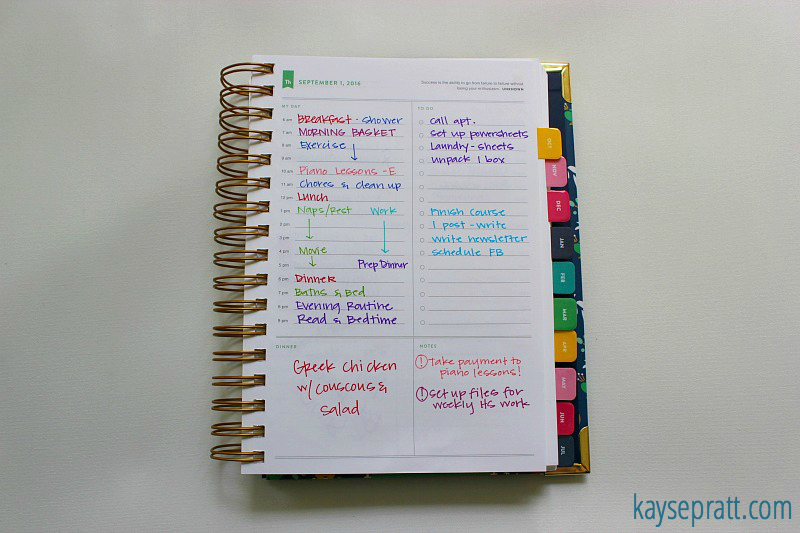 Th
SEPTEMBER 1, 2016
Success is the ability to go from failure to failure without
losing your enthusiasm. UNKNOWN
MY DAY
6 am Breakfast - shower
7 am MORNING BASKET
8 am Exercise
9 am
10 am Piano Lessons - E
11 am Chores & clean up
12 pm Lunch
1 pm Naps/Rest Work
2 pm
3 pm
4 pm Movie
5 pm Prep Dinner
6 pm Dinner
7 pm Baths & Bed
8 pm Evening Routine
9 pm Read & Bedtime
TO DO
call apt.
set up powersheets
Laundry - sheets
unpack 1 box
Finish Course
1 post - write
write newsletter
schedule FB
DINNER
Greek chicken
w/ couscous &
salad
NOTES
! Take payment to
piano lessons!
! set up files for
weekly HS work
OCT
NOV
DEC
JAN
FEB
MAR
APR
MAY
JUN
JUL
kaysepratt.com